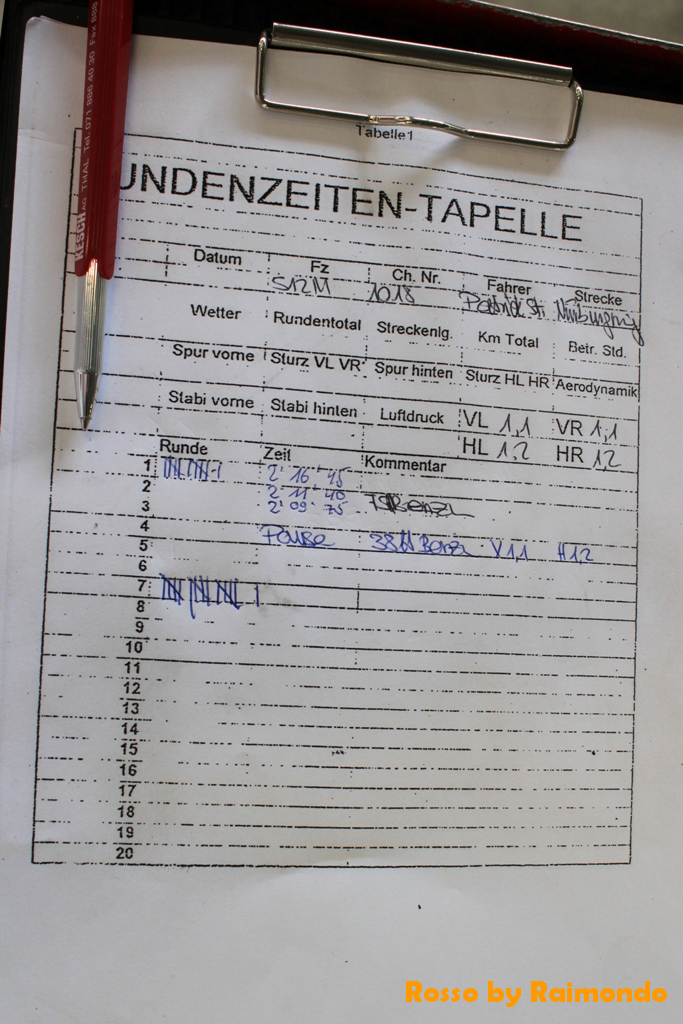 Tabelle1
KESCH AG THAL Tel. 071 886 40 30 Fax 888
UNDENZEITEN-TAPELLE
Datum Fz Ch. Nr. Fahrer Strecke
S12M 1018
Wetter Rundentotal Streckenlg. Km Total Betr. Std.
Spur vorne Sturz VL VR Spur hinten Sturz HL HR Aerodynamik
Stabi vorne Stabi hinten Luftdruck VL 1,1 VR 1,1
HL 1,2 HR 1,2
Runde Zeit Kommentar
1 2' 16' 45
2 2' 11' 40
3 2' 09' 75
4
5 Pause V 1,1 H 1,2
6
7
8
9
10
11
12
13
14
15
16
17
18
19
20
Rosso by Raimondo